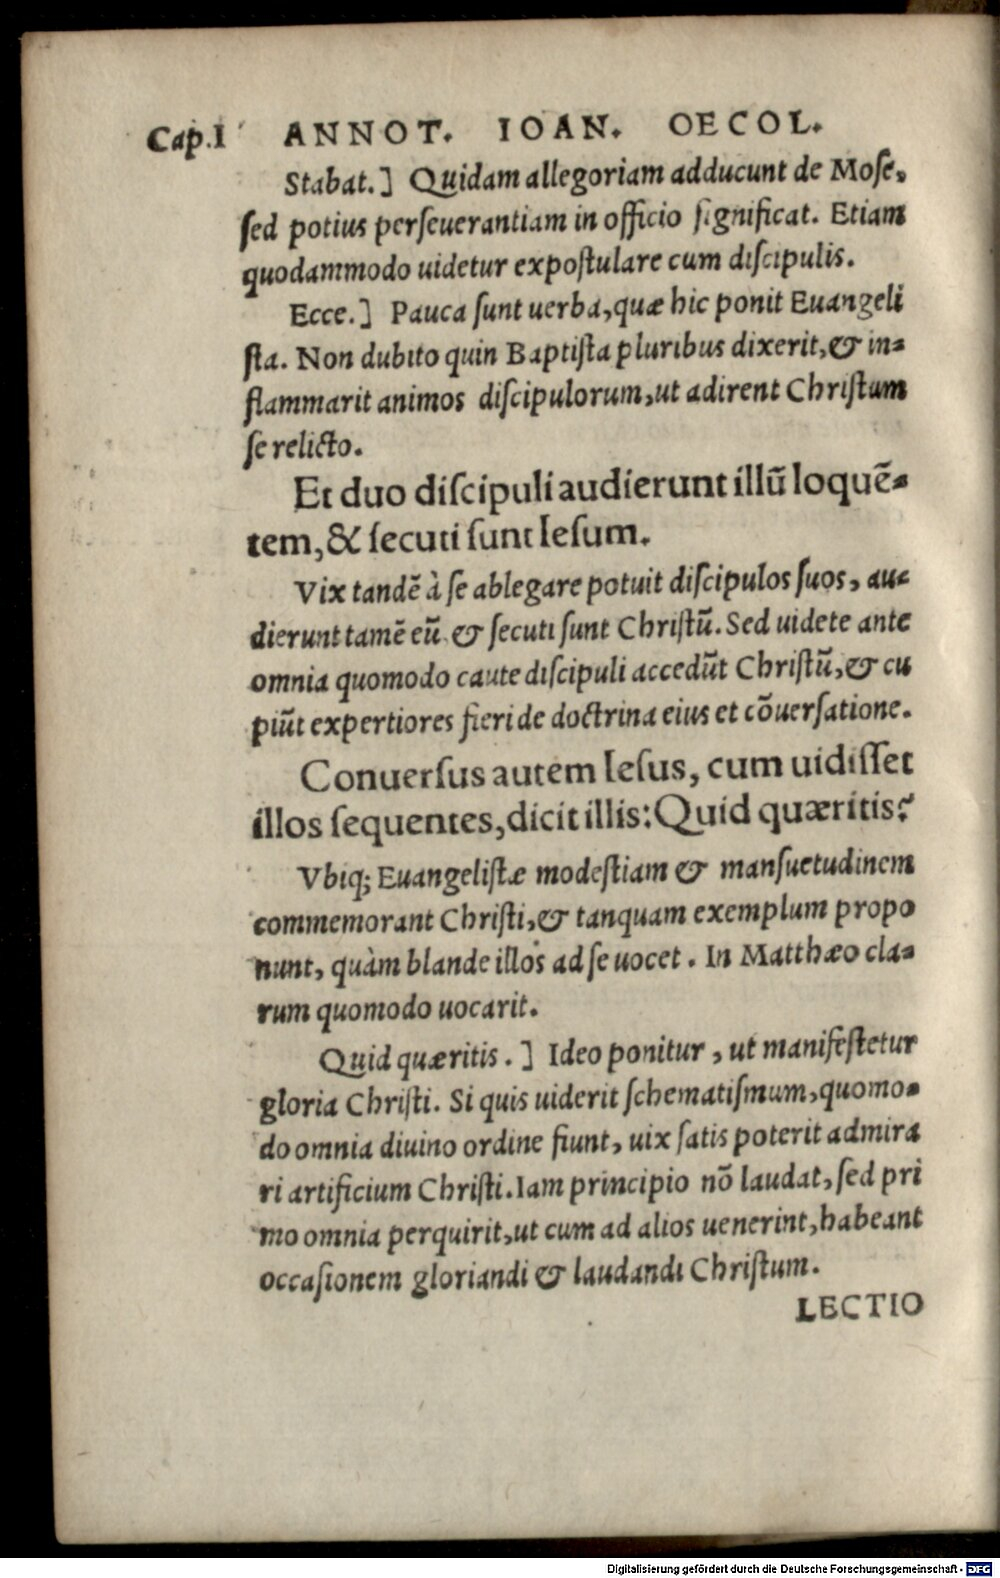 Cap.I ANNOT. IOAN. OECOL.
Stabat.] Quidam allegoriam adducunt de Mose,
sed potius perseuerantiam in officio significat. Etiam
quodammodo uidetur expostulare cum discipulis.
Ecce.] Pauca sunt uerba, quæ hic ponit Euangeli
sta. Non dubito quin Baptista pluribus dixerit, & in-
flammarit animos discipulorum, ut adirent Christum
se relicto.
Et duo discipuli audierunt illũ loquẽ-
tem, & secuti sunt Iesum.
Vix tandẽ à se ablegare potuit discipulos suos, au-
dierunt tamẽ eũ & secuti sunt Christũ. Sed uidete ante
omnia quomodo caute discipuli accedũt Christũ, & cu
piũt expertiores fieri de doctrina eius et cõuersatione.
Conuersus autem Iesus, cum uidisset
illos sequentes, dicit illis: Quid quæritis?
Vbiq; Euangelistæ modestiam & mansuetudinem
commemorant Christi, & tanquam exemplum propo
nunt, quàm blande illos ad se uocet. In Matthæo cla-
rum quomodo uocarit.
Quid quæritis.] Ideo ponitur, ut manifestetur
gloria Christi. Si quis uiderit schematismum, quomo-
do omnia diuino ordine fiunt, uix satis poterit admira
ri artificium Christi. Iam principio nõ laudat, sed pri
mo omnia perquirit, ut cum ad alios uenerint, habeant
occasionem gloriandi & laudandi Christum.
LECTIO
Digitalisierung gefördert durch die Deutsche Forschungsgemeinschaft - DFG